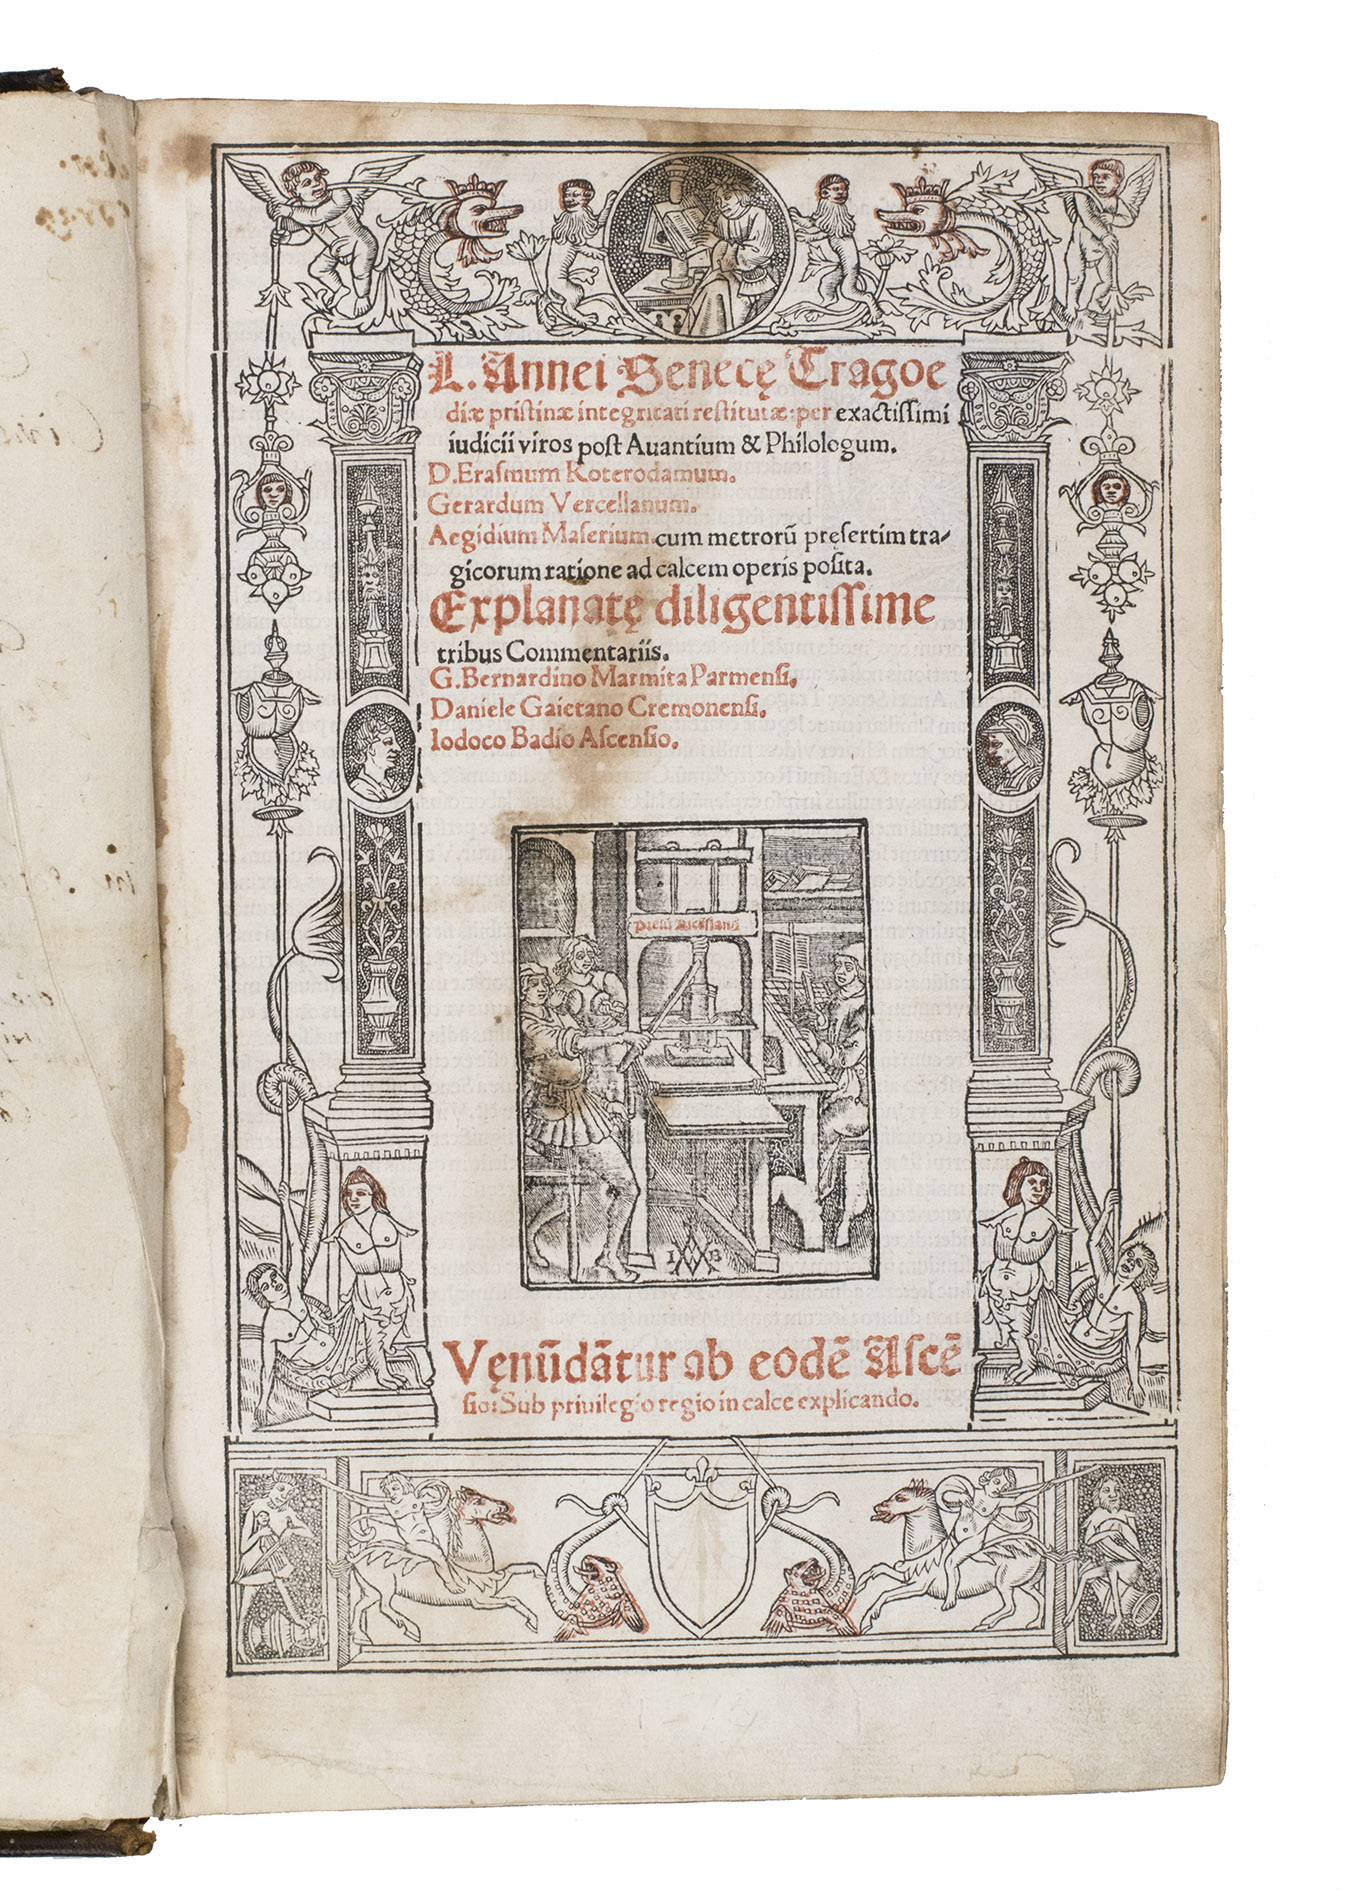 L. Annei Senecę Tragoe
diæ pristinæ integritati restitutæ: per exactissimi
iudicii viros post Auantium & Philologum.
D. Erasmum Roterodamum.
Gerardum Vercellanum.
Aegidium Maserium. cum metrorū pręsertim tra/
gicorum ratione ad calcem operis posita.
Explanatę diligentissime
tribus Commentariis.
G. Bernardino Marmita Parmensi.
Daniele Gaietano Cremonensi.
Iodoco Badio Ascensio.
Prelū Ascēsianū
I B
Vęnūdātur ab eodē Ascē
sio: Sub priuilegio regio in calce explicando.